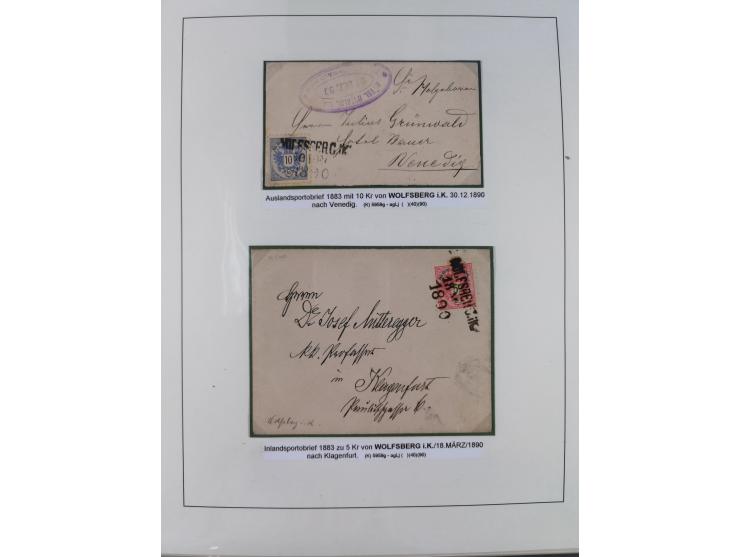 Sr. Hochgeboren
Herrn Julius Grünwald
Hotel Bauer
Venedig
WOLFSBERG i.K
10
1890
Auslandsportobrief 1883 mit 10 Kr von WOLFSBERG i.K. 30.12.1890
nach Venedig. (K) 5959g - agLj ( )(40)(90)
WOLFSBERG i.K
18
1890
Herrn
Dr Josef Mitteregger
k.k. Professor
in Klagenfurt
6
Wolfsberg i. K.
Inlandsportobrief 1883 zu 5 Kr von WOLFSBERG i.K./18.MÄRZ/1890
nach Klagenfurt. (K) 5959g - agLj ( )(40)(90)